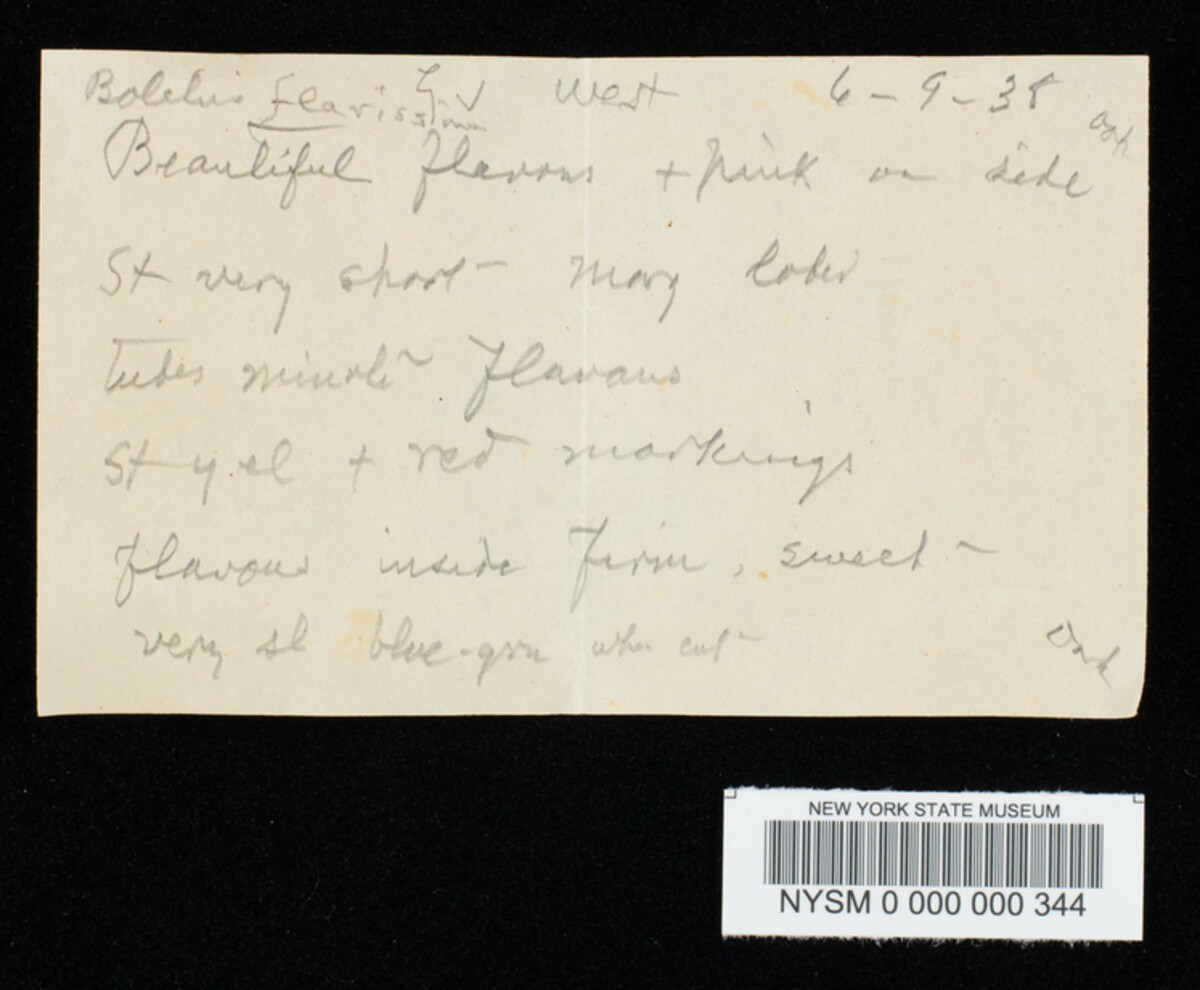 Boletus flavissimus G v West 6-9-38 Oak
Beautiful flavous + pink on side
St very short - marg lobed
tubes minute flavous
St yel + red markings
flavous inside firm, sweet -
very sl blue-grn when cut Oak
NEW YORK STATE MUSEUM
NYSM 0 000 000 344